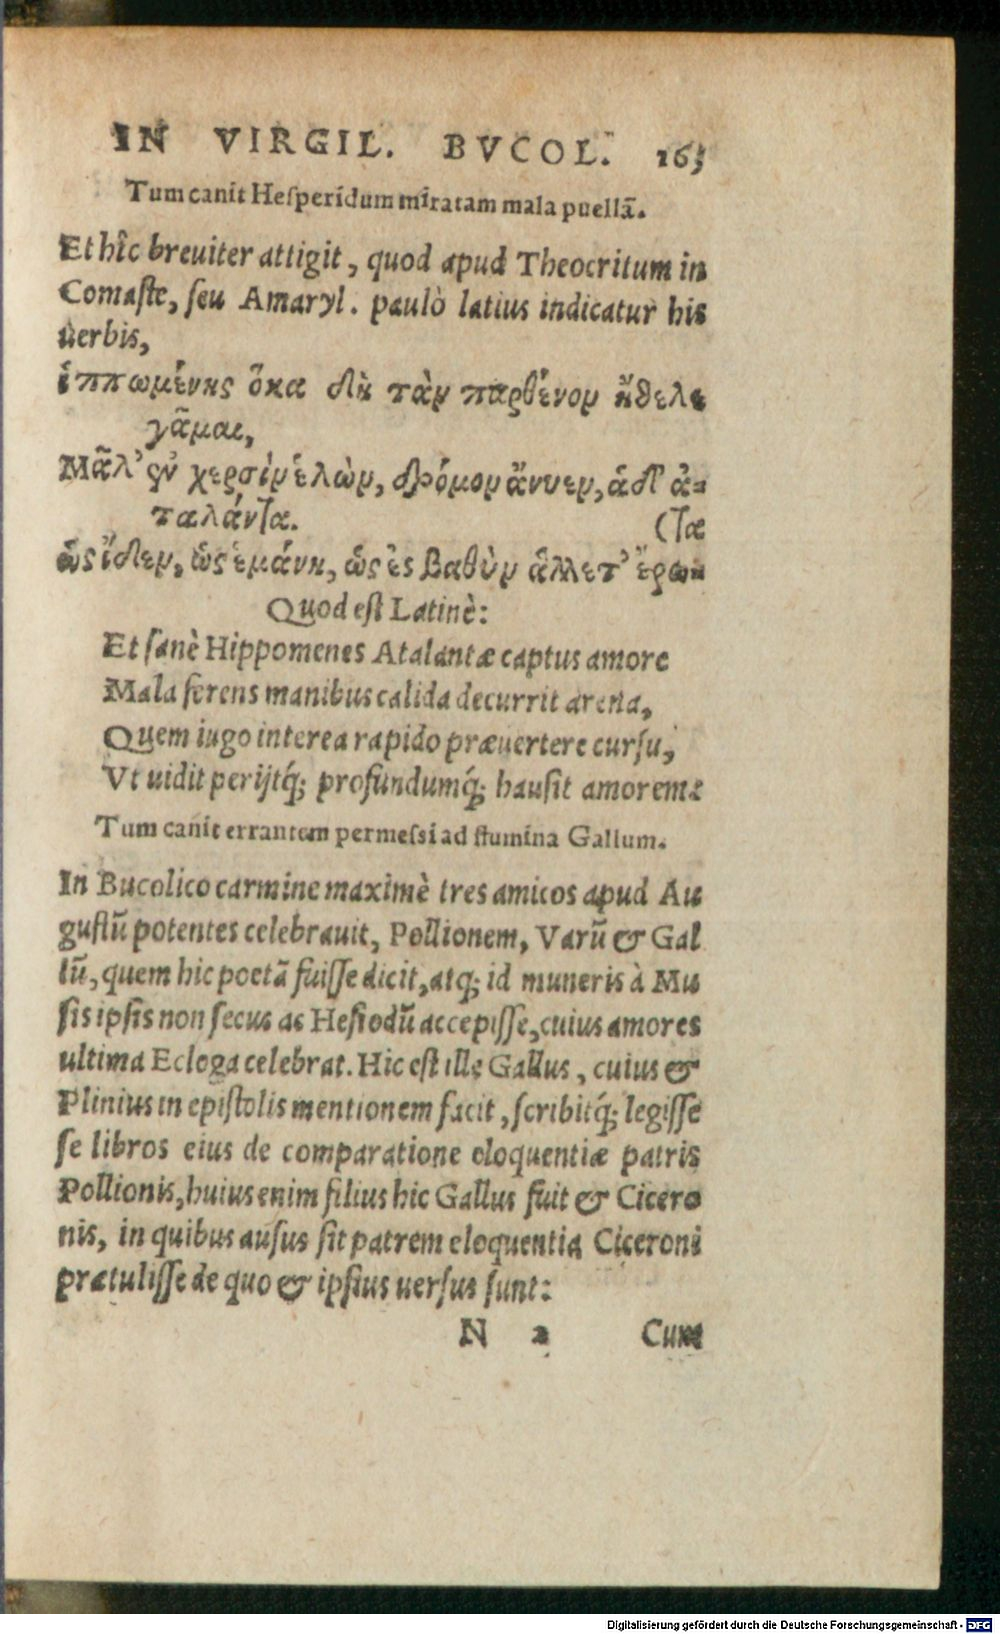 IN VIRGIL. BVCOL. 163
Tum canit Hesperidum miratam mala puellā.
Et hîc breuiter attigit, quod apud Theocritum in
Comaste, seu Amaryl. paulò latius indicatur his
uerbis,
ἱππωμένης ὅκα δὴ τὰν παρθένον ἤθελε
γᾶμαι,
Μᾶλ' ἐν χερσὶν ἑλὼν, δρόμον ἄνυεν, ἁ δ' ἀ=
ταλάντα. (τα
ὡς ἴδεν, ὣς ἐμάνη, ὣς ἐς βαθὺν ἅλλετ' ἔρω=
Quod est Latinè:
Et sanè Hippomenes Atalantæ captus amore
Mala ferens manibus calida decurrit arena,
Quem iugo interea rapido præuertere cursu,
Vt uidit perijtq́; profundumq́; hausit amorem:
Tum canit errantem permessi ad flumina Gallum.
In Bucolico carmine maximè tres amicos apud Au
gustū potentes celebrauit, Pollionem, Varū & Gal
lū, quem hic poetā fuisse dicit, atq; id muneris à Mu
sis ipsis non secus ac Hesiodū accepisse, cuius amores
ultima Ecloga celebrat. Hic est ille Gallus, cuius &
Plinius in epistolis mentionem facit, scribitq́; legisse
se libros eius de comparatione eloquentiæ patris
Pollionis, huius enim filius hic Gallus fuit & Cicero
nis, in quibus ausus sit patrem eloquentia Ciceroni
prætulisse de quo & ipsius uersus sunt:
N 2 Cum
Digitalisierung gefördert durch die Deutsche Forschungsgemeinschaft - DFG